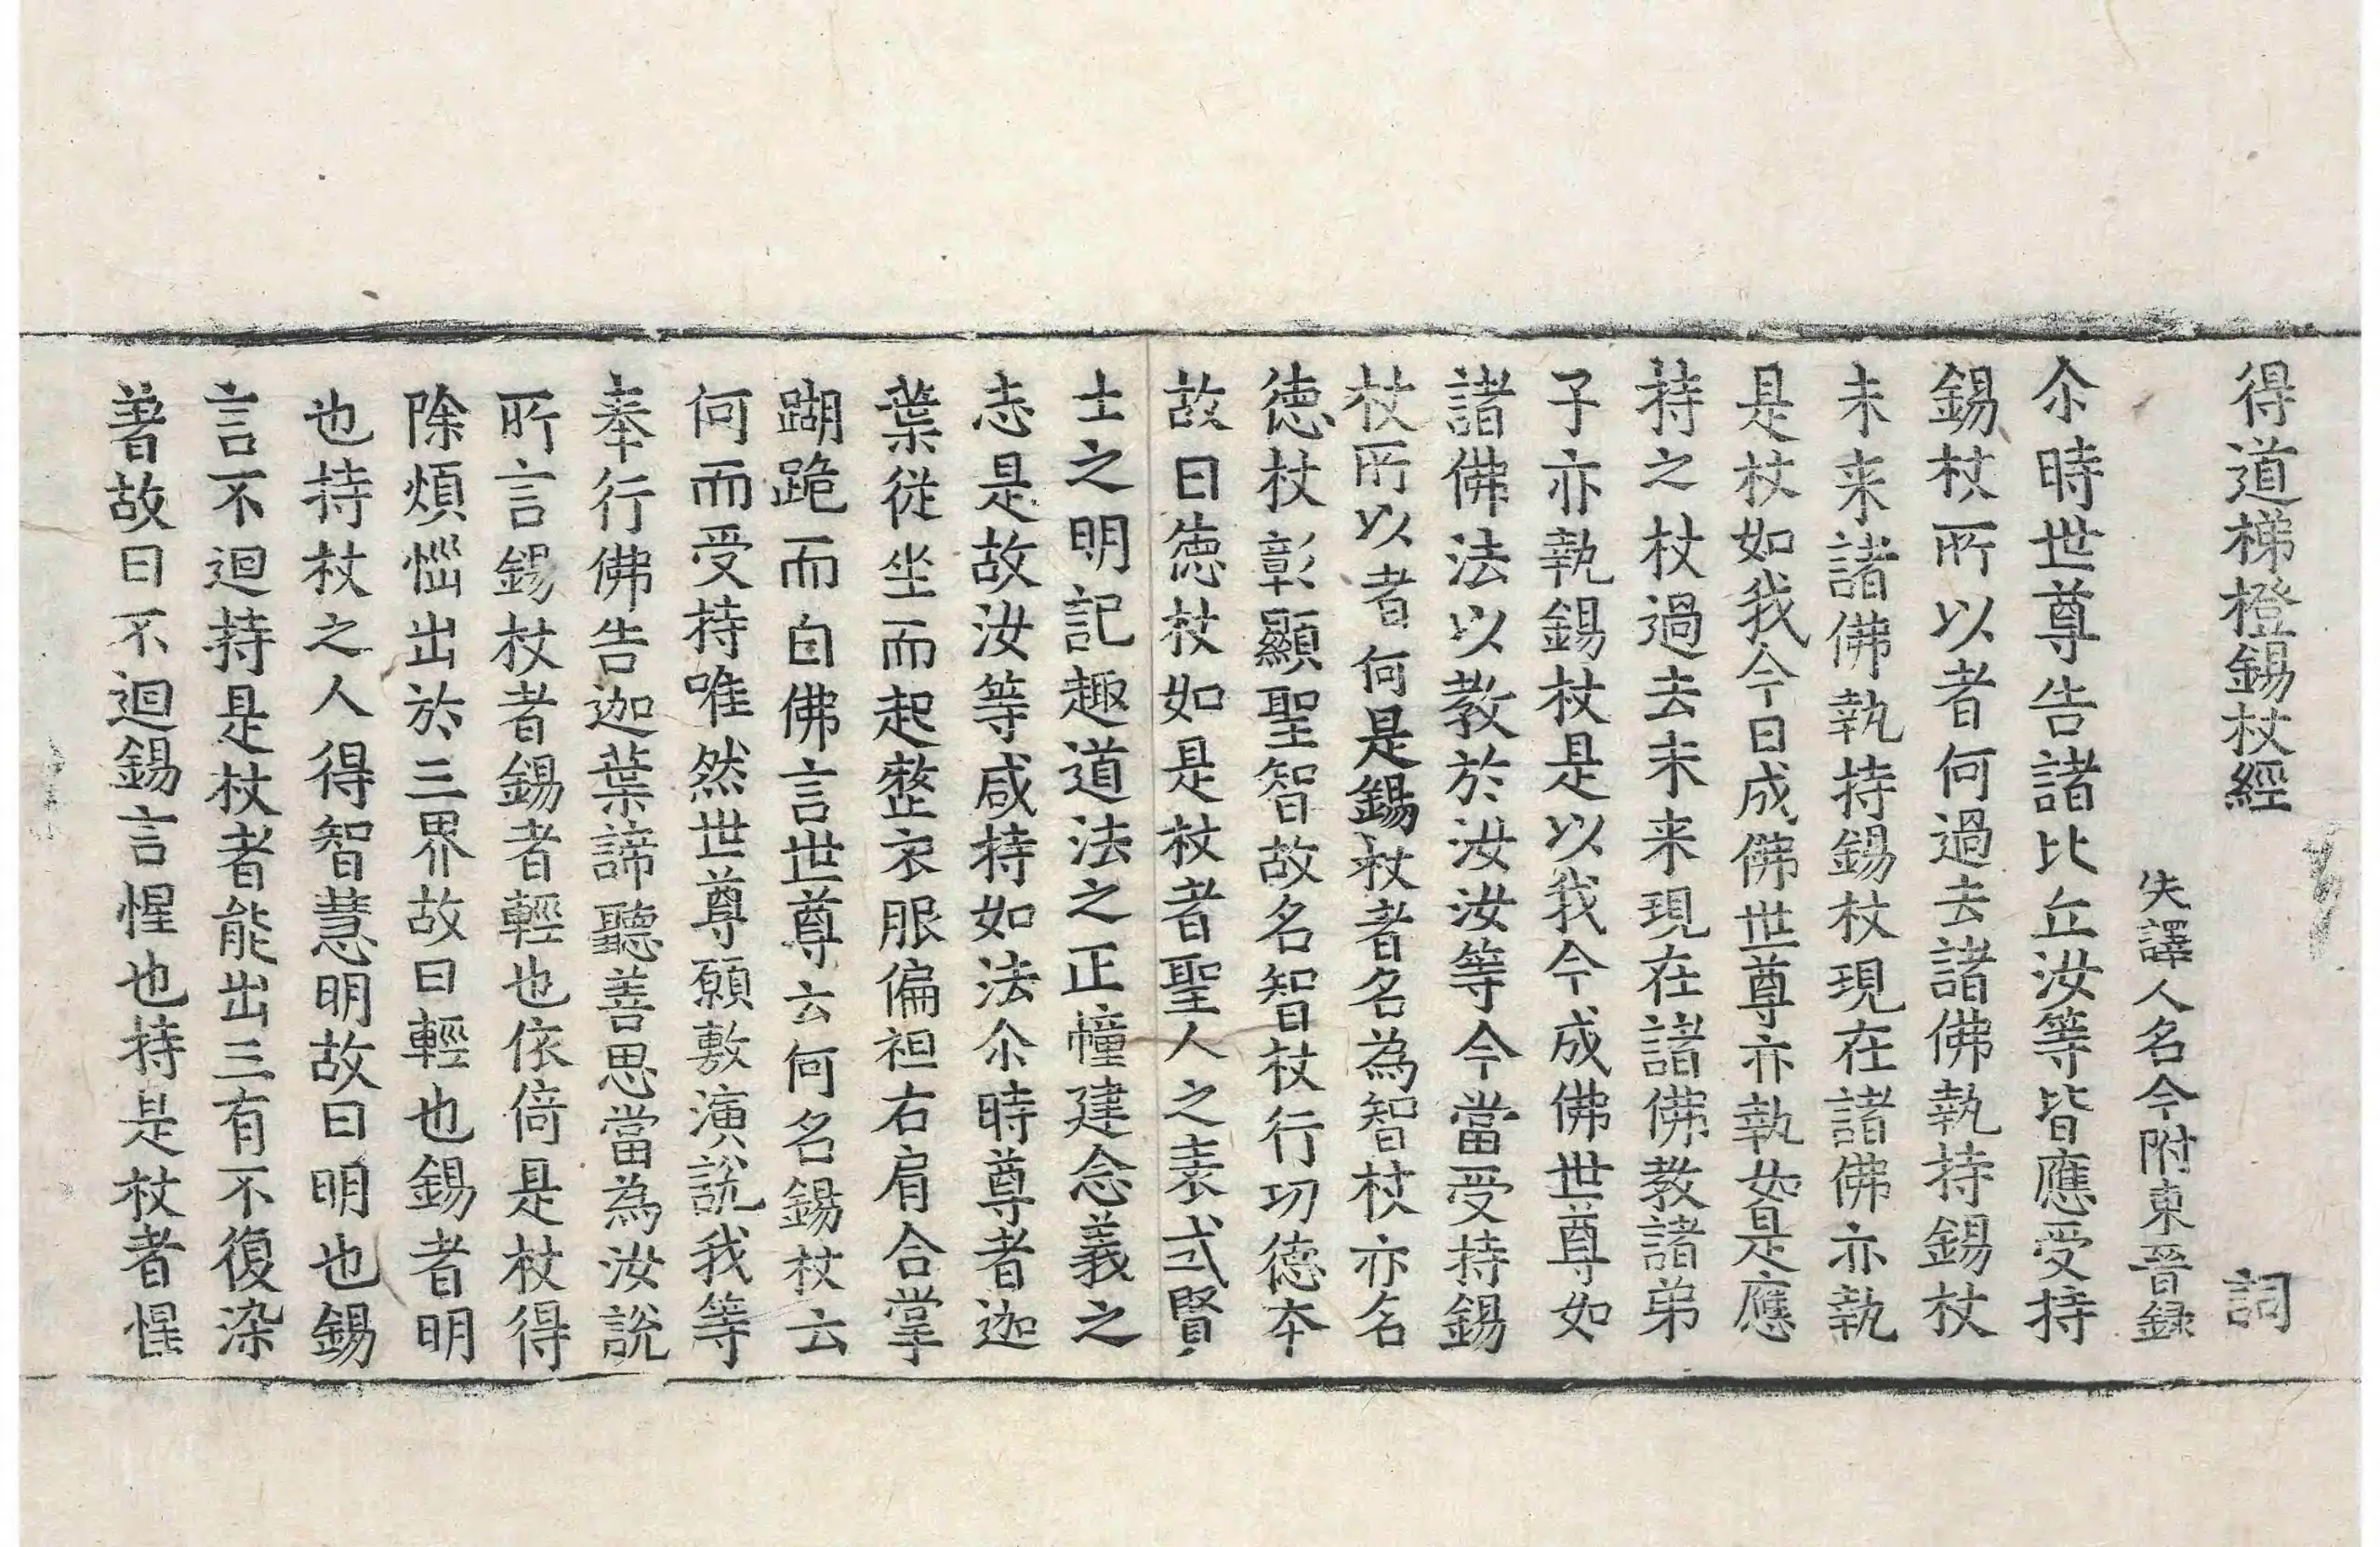 得道梯橙錫杖經 詞
失譯人名今附東晉録
尒時世尊告諸比丘汝等皆應受持
錫杖所以者何過去諸佛執持錫杖
未来諸佛執持錫杖現在諸佛亦執
是杖如我今日成佛世尊亦執如是應
持之杖過去未来現在諸佛教諸弟
子亦執錫杖是以我今成佛世尊如
諸佛法以教於汝汝等今當受持錫
杖所以者何是錫杖者名為智杖亦名
徳杖彰顯聖智故名智杖行功德本
故曰徳杖如是杖者聖人之表式賢
士之明記趣道法之正幢建念義之
志是故汝等咸持如法尒時尊者迦
葉從坐而起整衣服偏袒右肩合掌
蹦跪而白佛言世尊云何名錫杖云
何而受持唯然世尊願敷演說我等
奉行佛告迦葉諦聽善思當為汝說
所言錫杖者錫者輕也依倚是杖得
除煩惱出於三界故曰輕也錫者明
也持杖之人得智慧明故曰明也錫
言不迴持是杖者能出三有不復染
著故曰不迴錫言惺也持是杖者惺